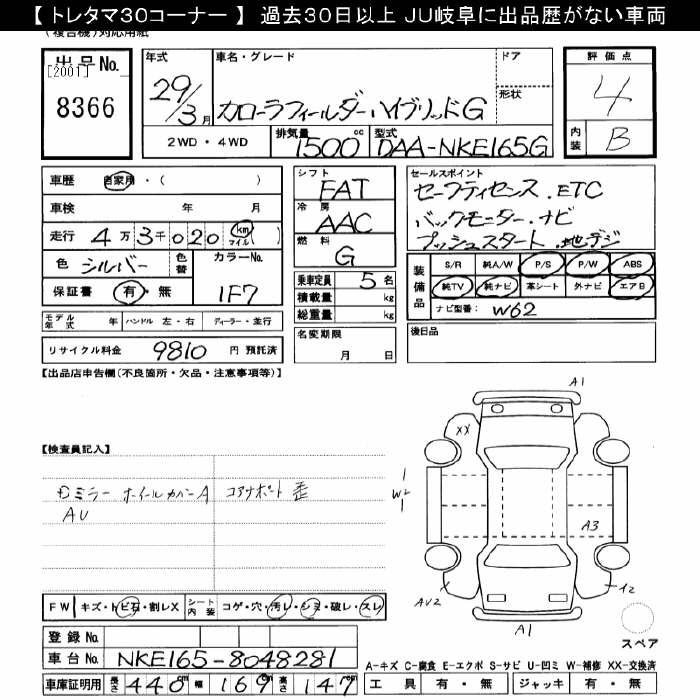 【 トレタマ30コーナー 】 過去30日以上 JU岐阜に出品歴がない車両
(複合機)対応用紙
出品No.
[2001]
8366
年式
29/3月
車名・グレード
カローラフィールダーハイブリッドG
ドア
形状
2WD・4WD
排気量 1500 cc
型式 DAA-NKE165G
評価点
4
内装 B
車歴 自家用・( )
車検 年 月
走行 4万3千020 km マイル ( )
色 シルバー 色替
カラーNo. 1F7
保証書 有・無
モデル年式 年 ハンドル 左・右 ディーラー・並行
リサイクル料金 9810 円 預託済
シフト
FAT
冷房
AAC
燃料
G
乗車定員 5 名
積載量 kg
総重量 kg
名変期限
月 日
セールスポイント
セーフティセンス.ETC
バックモニター.ナビ
プッシュスタート.地デジ
装備品
S/R 純A/W P/S P/W ABS
純TV 純ナビ 革シート 外ナビ エアB
ナビ型番: W62
後日品
【出品店申告欄(不良箇所・欠品・注意事項等)】
【検査員記入】
ミラー ホイールカバーA コアサポート歪
AU
A1
XX
W2
A3
AU2
A1
スペア
FW キズ・トビ石・割レX シート内装 コゲ・穴・汚レ・シミ・破レ・スレ
登録No.
車台No. NKE165-8048281
車庫証明用 長さ 440 cm 幅 169 cm 高さ 147 cm
A-キズ C-腐食 E-エクボ S-サビ U-凹ミ W-補修 XX-交換済
工具 有・無 ジャッキ 有・無